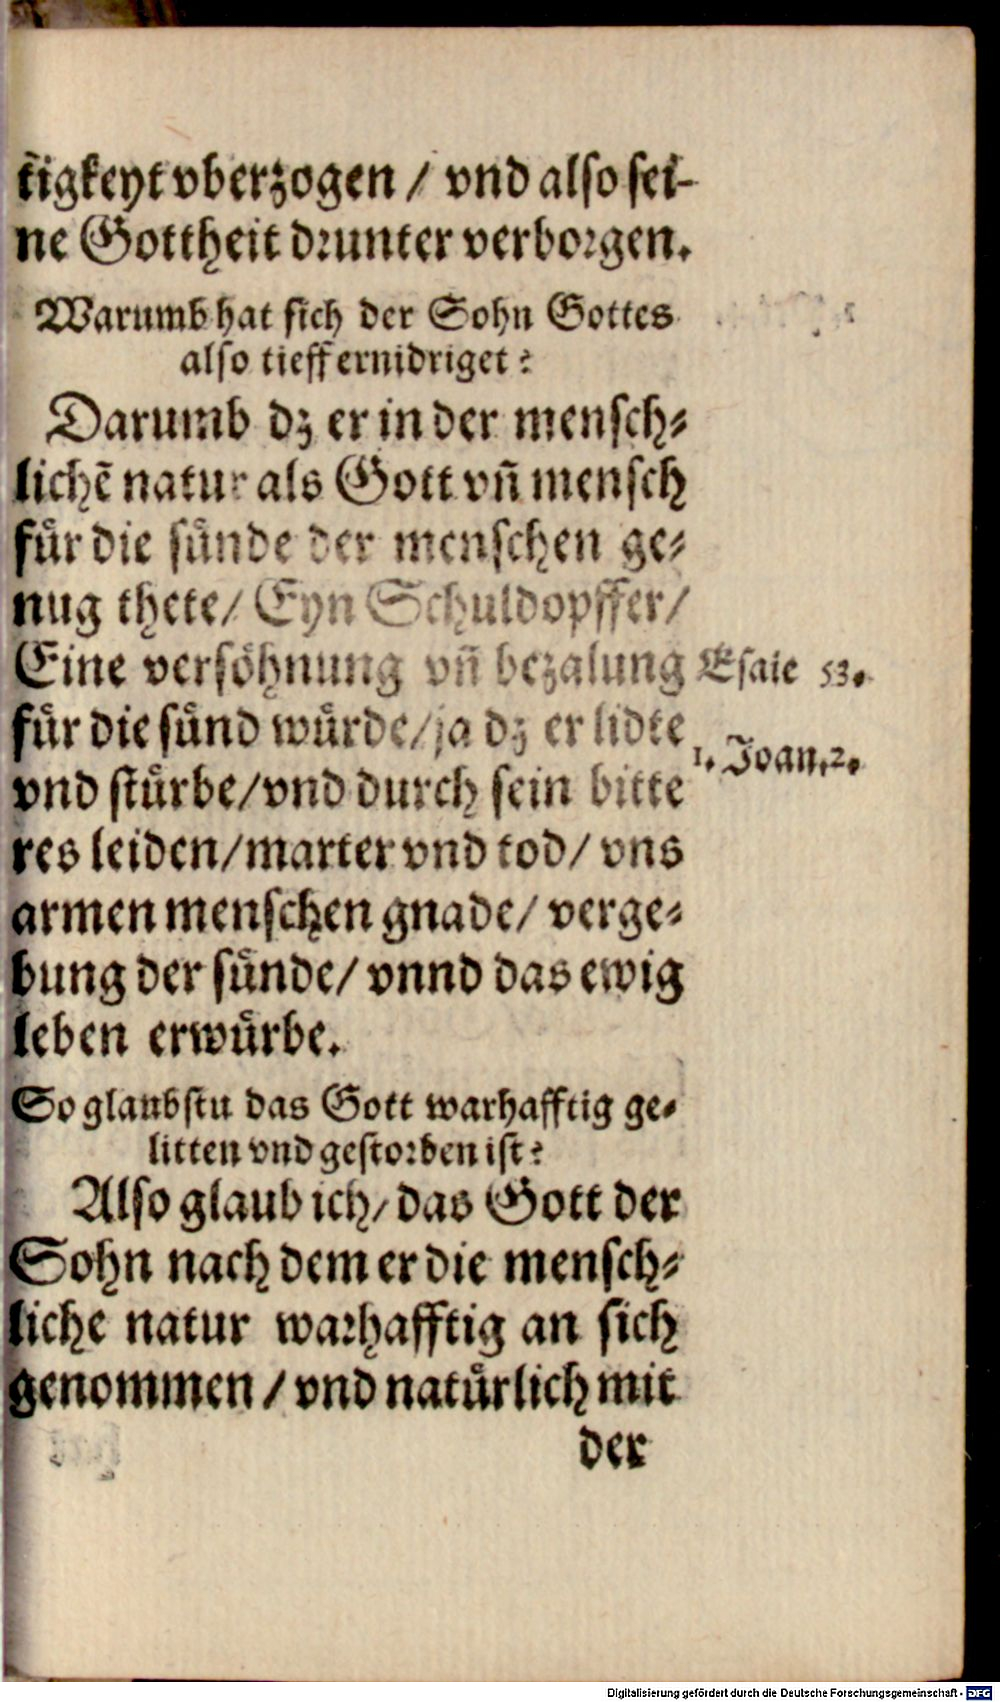 tigkeyt vberzogen / vnd also sei-
ne Gottheit drunter verborgen.
Warumb hat sich der Sohn Gottes
also tieff ernidriget?
Darumb dz er in der mensch-
lichē natur als Gott vñ mensch
fuͤr die suͤnde der menschen ge-
nug thete / Eyn Schuldopffer /
Eine versoͤhnung vñ bezalung
Esaie 53.
fuͤr die suͤnd wuͤrde / ja dz er lidte
1. Joan. 2.
vnd stuͤrbe / vnd durch sein bitte
res leiden / marter vnd tod / vns
armen menschen gnade / verge-
bung der suͤnde / vnnd das ewig
leben erwuͤrbe.
So glaubstu das Gott warhafftig ge-
litten vnd gestorben ist?
Also glaub ich / das Gott der
Sohn nach dem er die mensch-
liche natur warhafftig an sich
genommen / vnd natuͤrlich mit
der
Digitalisierung gefördert durch die Deutsche Forschungsgemeinschaft - DFG